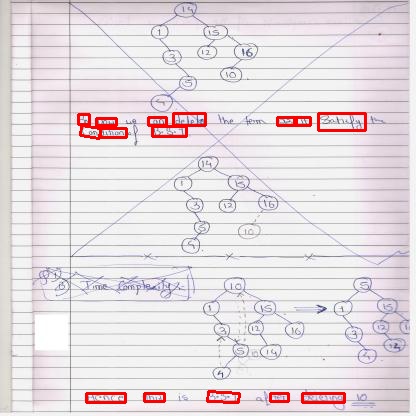 14
1 15
3 12 16
5 10
4
we can delete the term as it Satisfy the
Condition of B.S.T
14
1 15
3 12 16
5 10
4
Time Complexity
10 5
1 15 1 15
3 12 16 3 12
5 14 4
4
Hence is B.S.T after deleting 10